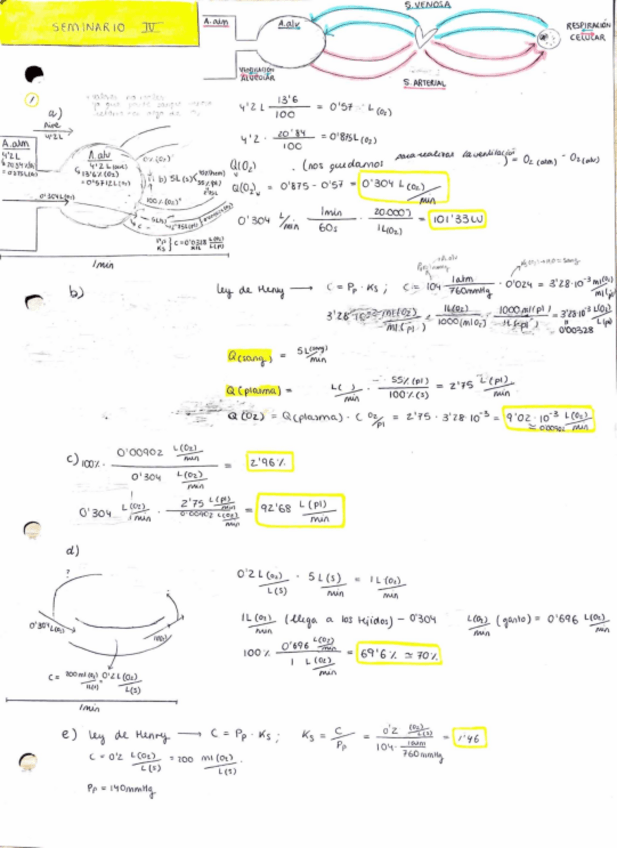 SEMINARIO IV
A.atm
A.alv
S. VENOSA
RESPIRACIÓN CELULAR
VENTILACIÓN ALVEOLAR
S. ARTERIAL
1
a)
Aire
4'2L
4'2 L 13'6/100 = 0'57 L (O2)
4'2 · 20'84/100 = 0'875 L (O2)
A.atm
4'2L
A.alv
4'2 L
13'6% (O2)
= 0'5712 L (O2)
0'304 L (O2)
b) 5L(s)
100% (O2)
1 min
Q(O2) (nos quedamos para realizar la ventilación) = O2 (atm) - O2 (alv)
Q(O2)v = 0'875 - 0'57 = 0'304 L(O2)/min
0'304 L/min · 1min/60s · 20.000J/1L(O2) = 101'33W
b)
Ley de Henry → C = Pp · Ks ; C = 104 · 1atm/760mmHg · 0'024 = 3'28·10⁻³ ml(O2)/ml(pl)
3'28·10⁻³ ml(O2)/ml(pl) · 1L(O2)/1000(ml O2) · 1000ml(pl)/1L(pl) = 3'28·10⁻³ L(O2)/L(pl)
0'00328
Q(sang) = 5L(sang)/min
Q(plasma) = L( )/min · 55%(pl)/100%(s) = 2'75 L(pl)/min
Q(O2) = Q(plasma) · C O2/pl = 2'75 · 3'28·10⁻³ = 9'02·10⁻³ L(O2)/min ≈ 0'00902 L(O2)/min
c) 100% · 0'00902 L(O2)/min / 0'304 L(O2)/min = 2'96%
0'304 L(O2)/min · 2'75 L(pl)/min / 0'00902 L(O2)/min = 92'68 L(pl)/min
d)
?
0'304L(O2)
C = 200 ml(O2)/L(s) = 0'2 L(O2)/L(s)
1min
0'2 L(O2)/L(s) · 5L(s)/min = 1L(O2)/min
1L(O2)/min (llega a los tejidos) - 0'304 L(O2)/min (gasto) = 0'696 L(O2)/min
100% 0'696 L(O2)/min / 1 L(O2)/min = 69'6% ≈ 70%
e) Ley de Henry → C = Pp · Ks ; Ks = C/Pp = 0'2 L(O2)/L(s) / 104 · 1atm/760mmHg = 1'46
C = 0'2 L(O2)/L(s) = 200 ml(O2)/L(s).
Pp = 140mmHg